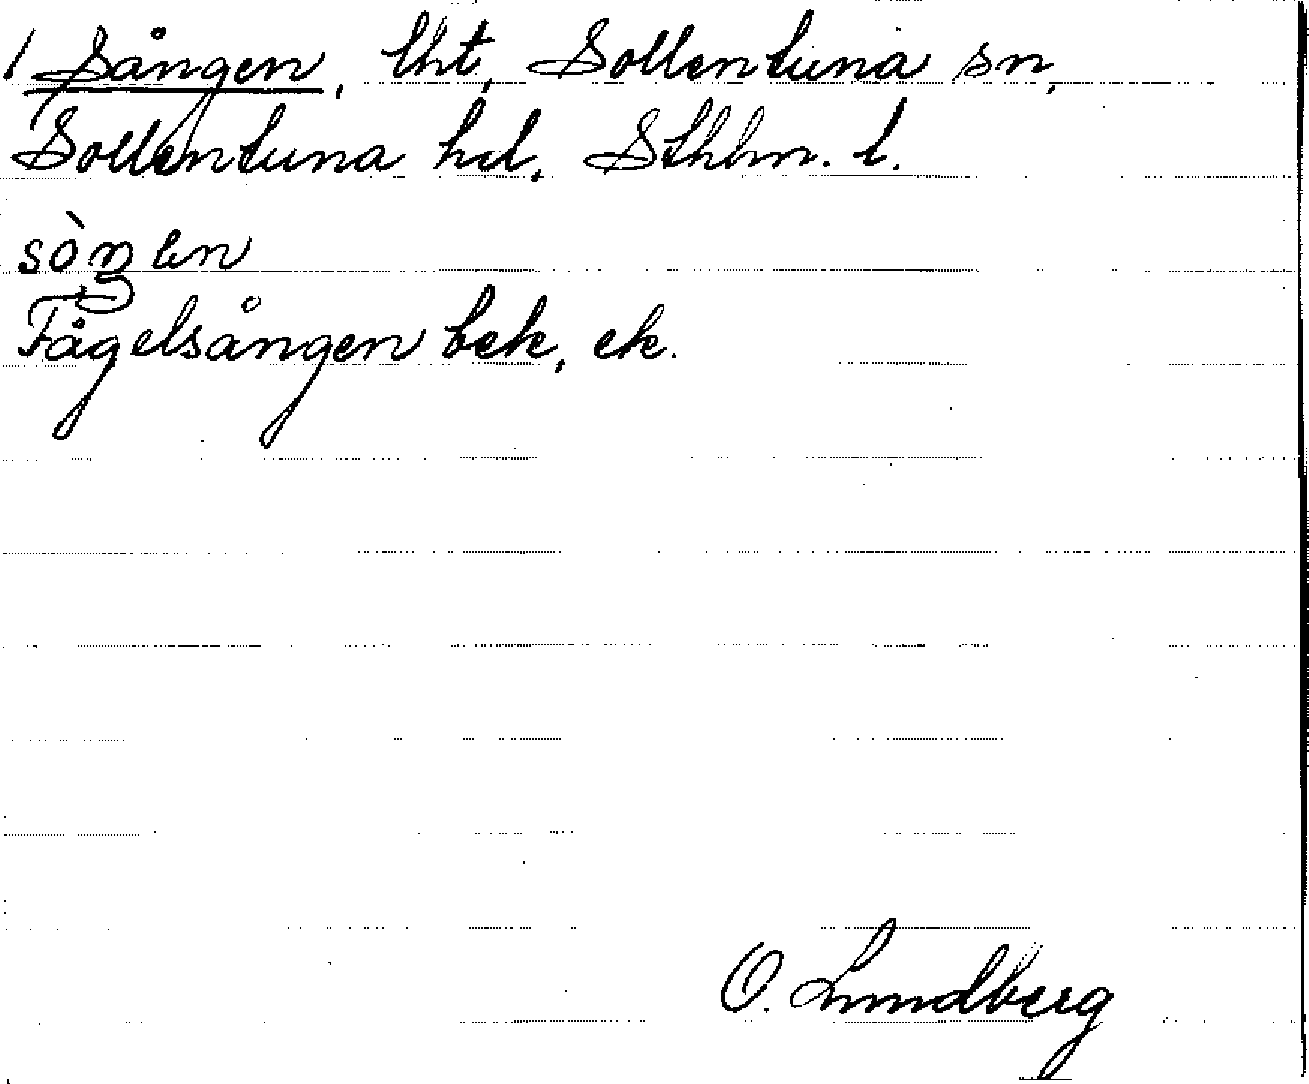 1 Sången, lht, Sollentuna sn,
Sollentuna hd, Sthlm. l.
sòŋen
Fågelsången bek, ek.
O. Lundberg